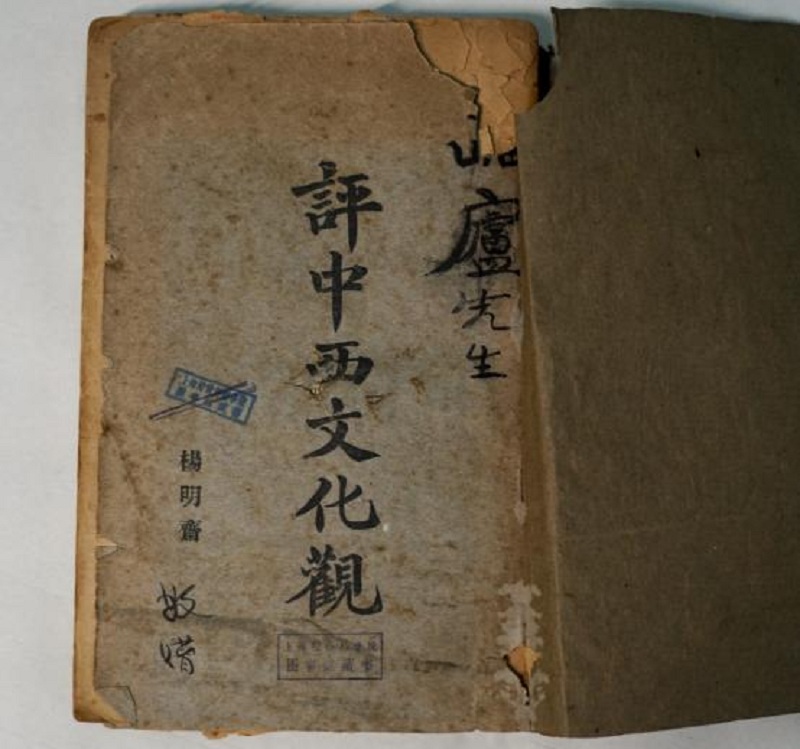 廬先生
評中西文化觀
楊明齋
敬贈